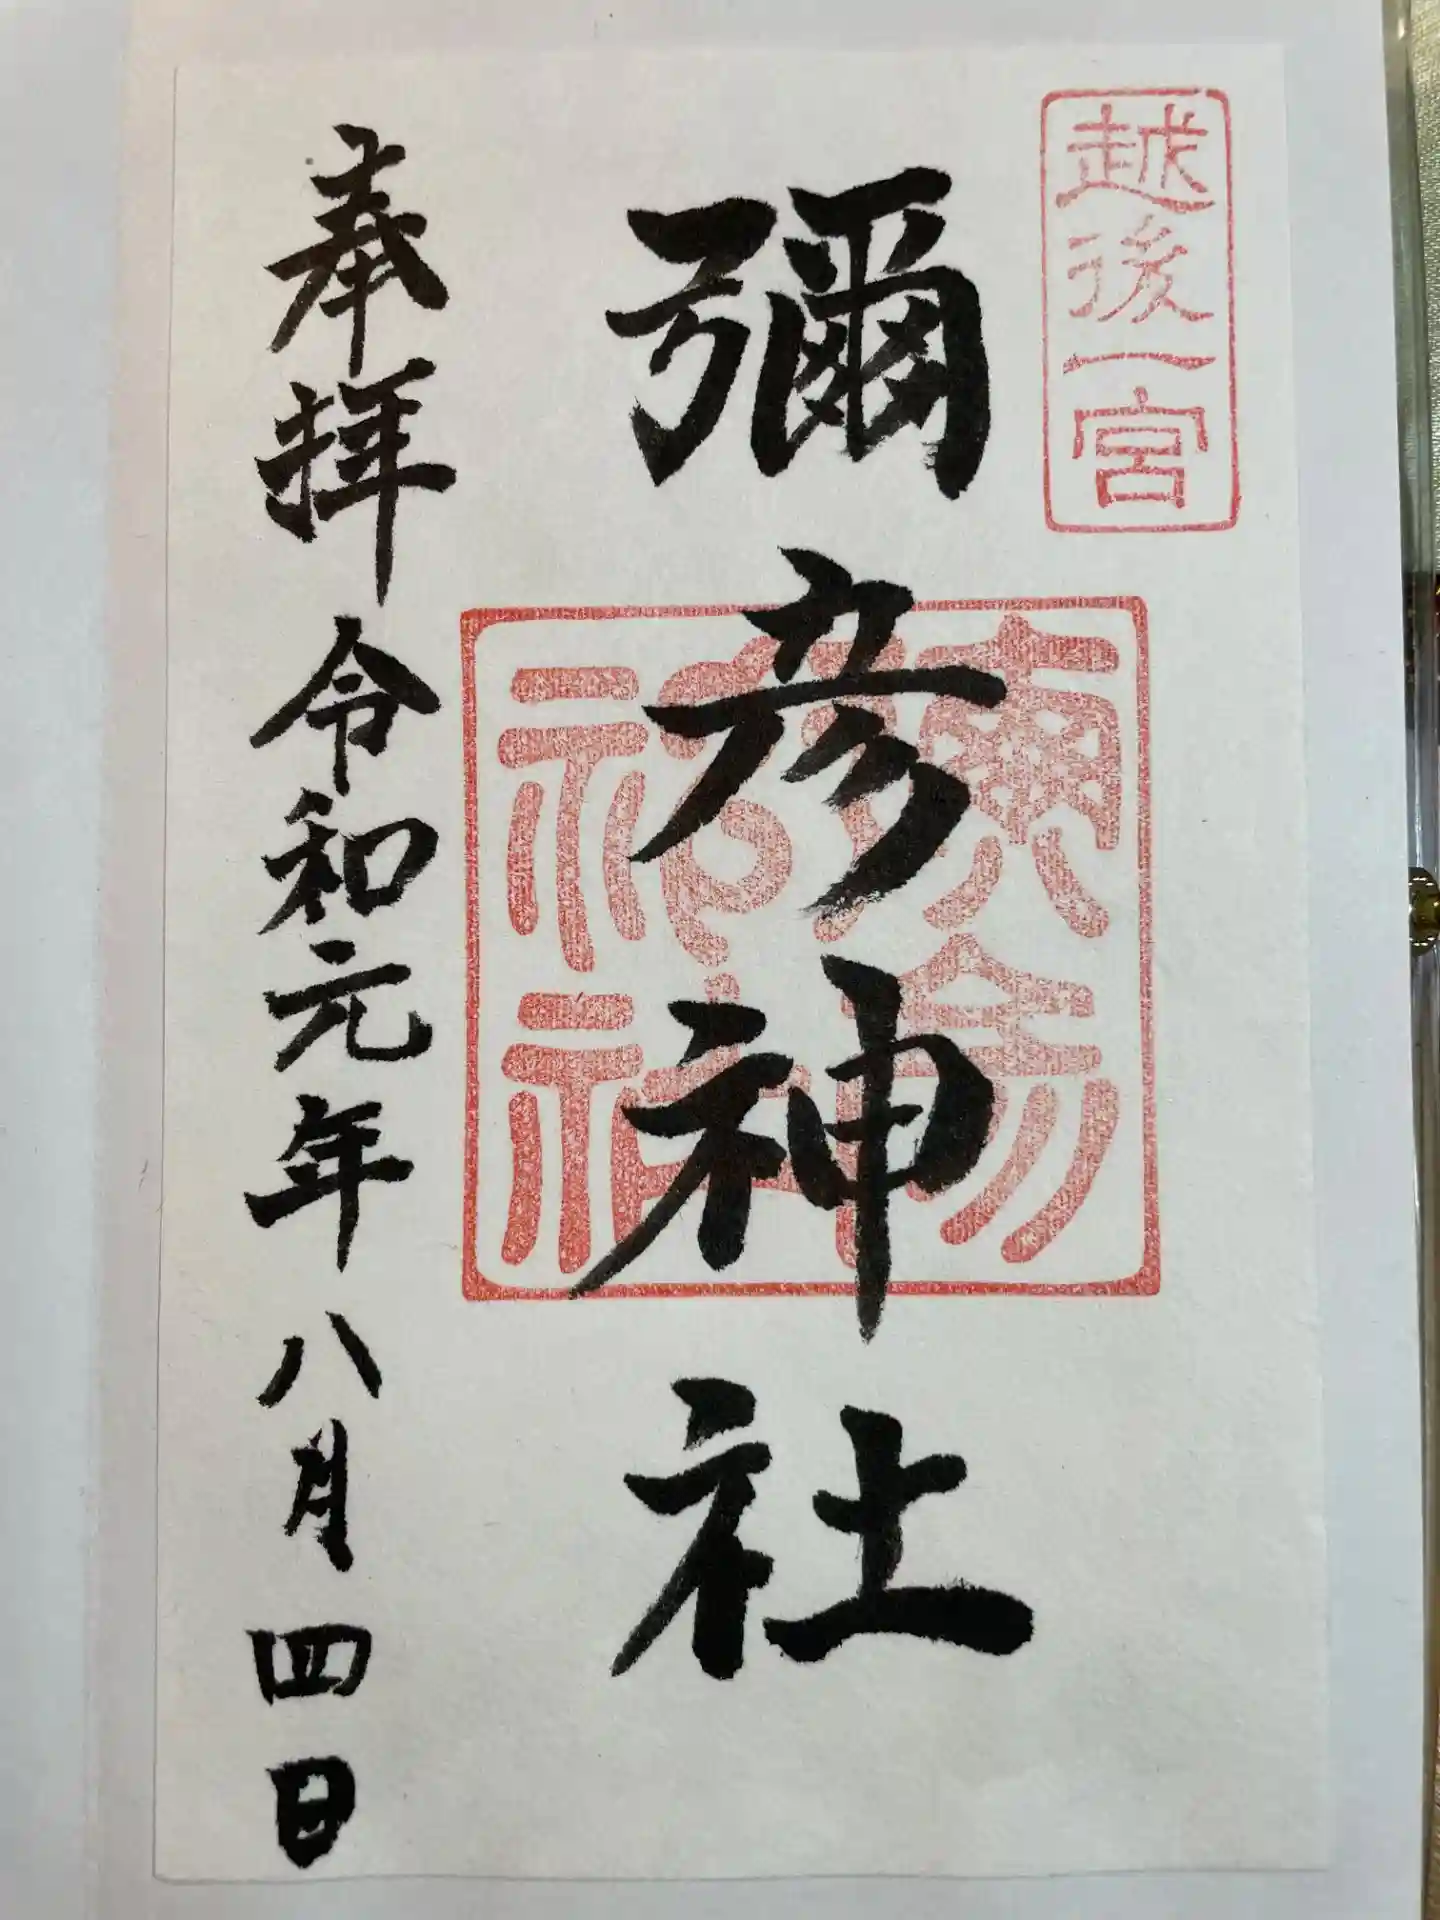 越後一宮
彌彦神社
奉拝 令和元年 八月 四日